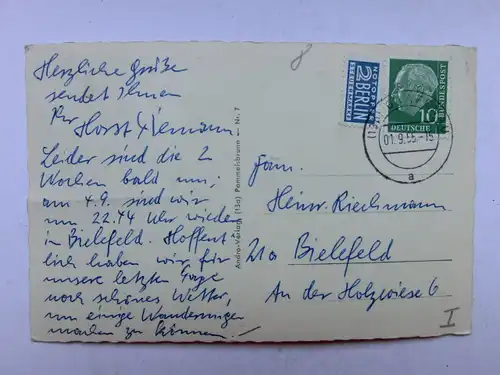 Herzliche Grüße
sendet Ihnen
Ihr Horst
Leider sind die 2
Wochen bald um;
am 4.9. sind wir
um 22.44 Uhr wieder
in Bielefeld. Hoffent
lich haben wir für
unsere letzten Tage
noch schönes Wetter,
um einige Wanderungen
machen zu können.
Andro-Verlag (13a) Pommelsbrunn - Nr. 7
8
NOTOPFER
2 BERLIN
STEUERMARKE
10
DEUTSCHE
BUNDESPOST
01.9.55.-15
a
Fam.
Heinr. Riechmann
21a Bielefeld
An der Holzwiese 6
I